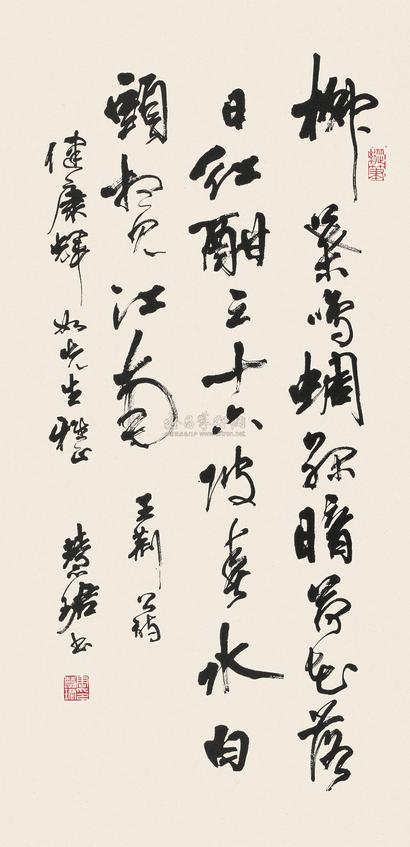 柳葉鳴蜩綠暗荷花落
日紅酣三十六陂春水白
頭想見江南 王荊公詩
輝如先生雅正 慧珺書